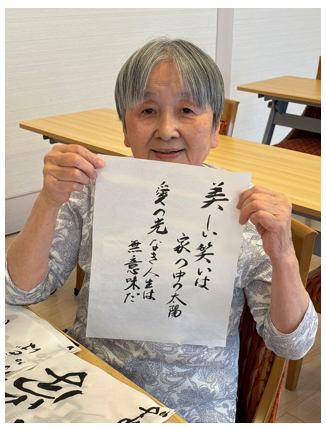 美しい笑いは
家の中の太陽
愛の光
なき人生は
無意味だ